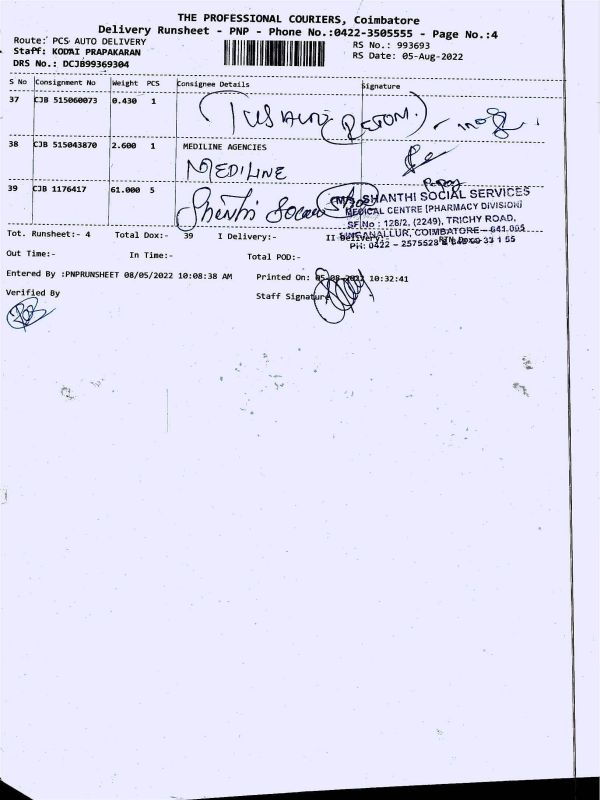 THE PROFESSIONAL COURIERS, Coimbatore
Delivery Runsheet - PNP - Phone No.:0422-3505555 - Page No.:4
Route: PCS AUTO DELIVERY
RS No.: 993693
Staff: KODAI PRAPAKARAN
RS Date: 05-Aug-2022
DRS No.: DCJB99369304
S No Consignment No Weight PCS Consignee Details Signature
37 CJB 515060073 0.430 1
38 CJB 515043870 2.600 1 MEDILINE AGENCIES
MEDILINE
39 CJB 1176417 61.000 5 Shanthi Social
M/s. SHANTHI SOCIAL SERVICES
MEDICAL CENTRE [PHARMACY DIVISION]
SF.No : 128/2, (2249), TRICHY ROAD,
SINGANALLUR, COIMBATORE - 641 005
PH: 0422 - 2575528
Tot. Runsheet:- 4 Total Dox:- 39 I Delivery:- II Delivery:-
Out Time:- In Time:- Total POD:-
Entered By :PNPRUNSHEET 08/05/2022 10:08:38 AM Printed On: 05-08-2022 10:32:41
Verified By Staff Signature